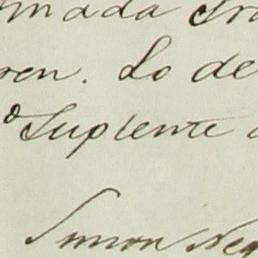 mada
ren. Lo de
Suplente
Simon Neg